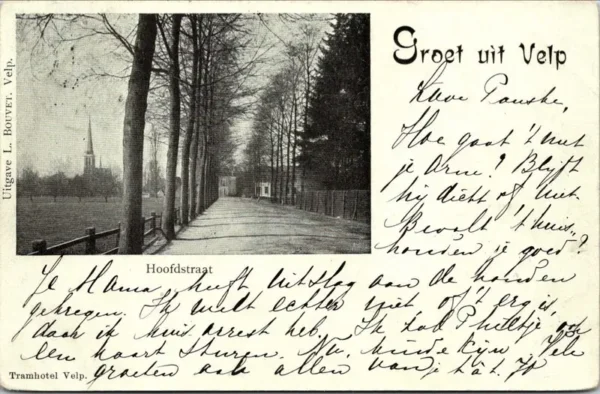 Groet uit Velp
Uitgave L. BOUVET. Velp.
Lieve Tonske,
Hoe gaat 't met
je Arm? Blijft
hij dicht of niet.
Bevalt 't huis-
houden je goed?
Hoofdstraat
Je Mama heeft uitslag aan de handen
gekregen. Ik weet echter niet of 't erg is,
daar ik huis arrest heb. Ik zal ook
een kaart sturen. Nu, kindekijn, Vele
groeten aan allen van je
Tramhotel Velp.